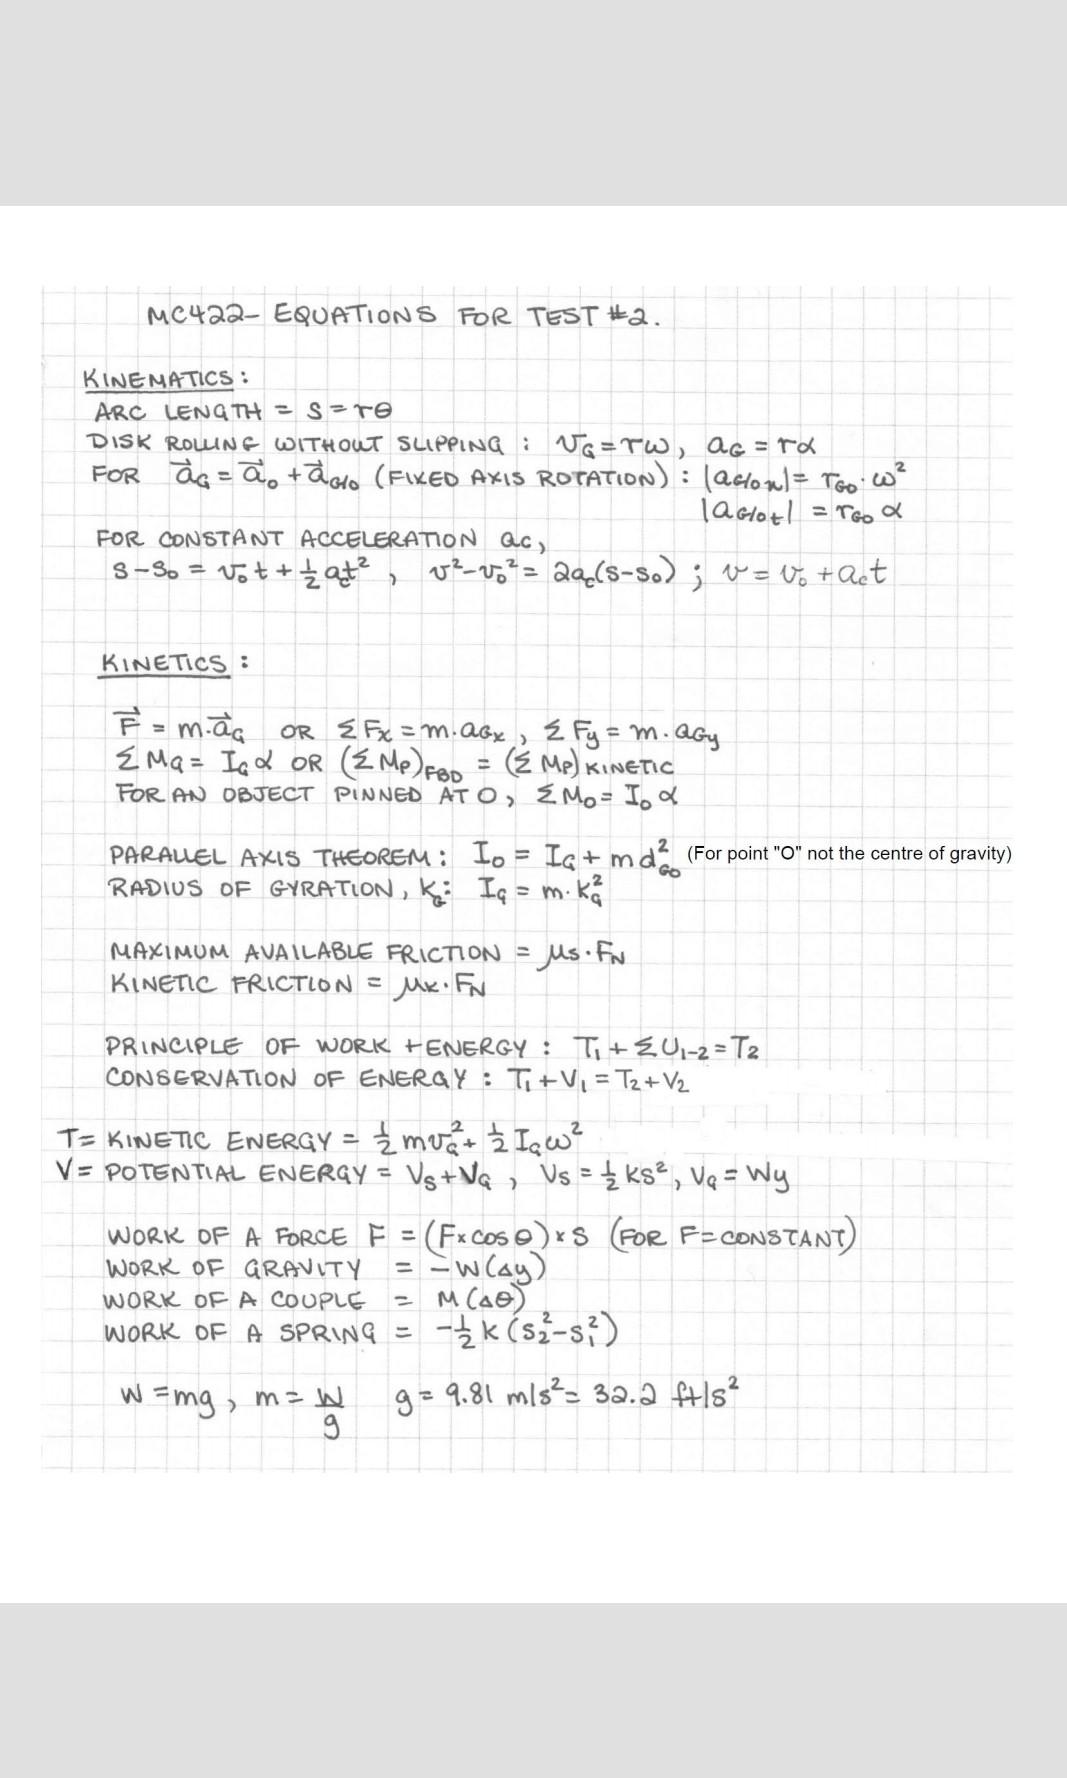 MC422- EQUATIONS FOR TEST #2.
KINEMATICS:
ARC LENGTH = S = rθ
DISK ROLLING WITHOUT SLIPPING : v_G = rω, a_G = rα
FOR a⃗_G = a⃗_O + a⃗_G/O (FIXED AXIS ROTATION) : |a_G/O n| = r_GO · ω²
|a_G/O t| = r_GO α
FOR CONSTANT ACCELERATION a_c,
S - S₀ = v₀t + ½ a_c t² , v² - v₀² = 2a_c(S - S₀) ; v = v₀ + a_c t
KINETICS :
F⃗ = m·a⃗_G OR ΣF_x = m·a_Gx , ΣF_y = m·a_Gy
ΣM_G = I_G α OR (ΣM_P)_FBD = (ΣM_P) KINETIC
FOR AN OBJECT PINNED AT O, ΣM_O = I_O α
PARALLEL AXIS THEOREM : I_O = I_G + m d²_GO (For point "O" not the centre of gravity)
RADIUS OF GYRATION, k_G: I_G = m·k_G²
MAXIMUM AVAILABLE FRICTION = μ_s·F_N
KINETIC FRICTION = μ_k·F_N
PRINCIPLE OF WORK + ENERGY : T₁ + ΣU₁₋₂ = T₂
CONSERVATION OF ENERGY : T₁ + V₁ = T₂ + V₂
T = KINETIC ENERGY = ½ m v_G² + ½ I_G ω²
V = POTENTIAL ENERGY = V_S + V_G , V_S = ½ kS² , V_G = Wy
WORK OF A FORCE F = (F × COS θ) × S (FOR F = CONSTANT)
WORK OF GRAVITY = -W(Δy)
WORK OF A COUPLE = M(Δθ)
WORK OF A SPRING = -½ k (S₂² - S₁²)
W = mg , m = W/g g = 9.81 m/s² = 32.2 ft/s²